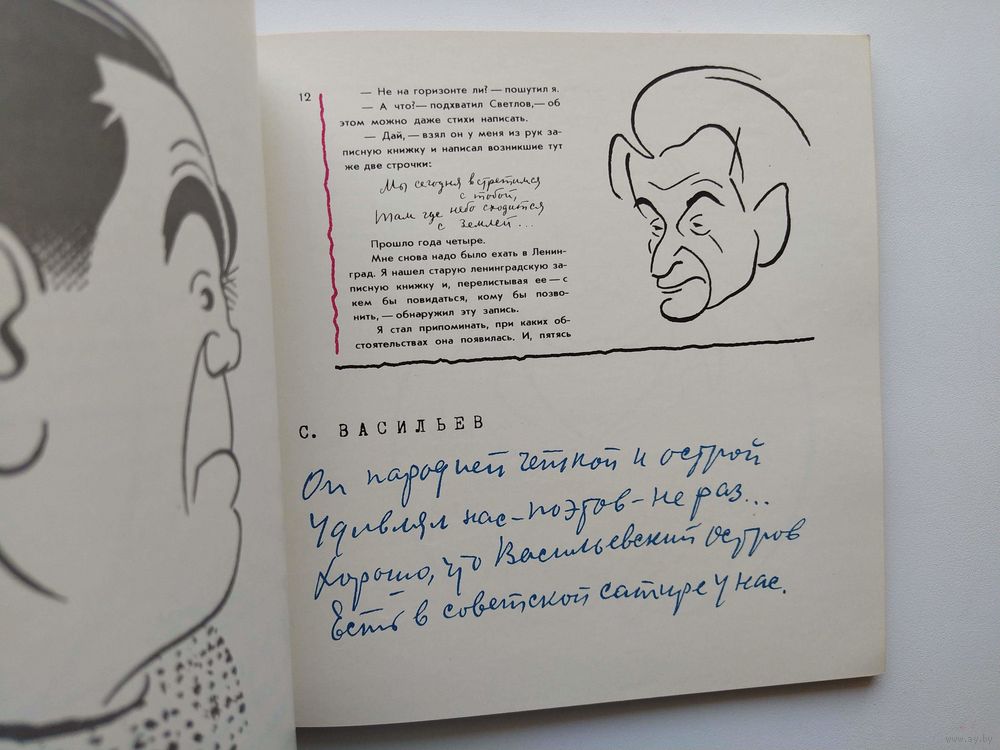 12
— Не на горизонте ли? — пошутил я.
— А что? — подхватил Светлов, — об
этом можно даже стихи написать.
— Дай, — взял он у меня из рук за-
писную книжку и написал возникшие тут
же две строчки:
Мы сегодня встретимся
с тобой,
Там где небо сходится
с землей...
Прошло года четыре.
Мне снова надо было ехать в Ленин-
град. Я нашел старую ленинградскую за-
писную книжку и, перелистывая ее — с
кем бы повидаться, кому бы позво-
нить, — обнаружил эту запись.
Я стал припоминать, при каких об-
стоятельствах она появилась. И, пятясь
С. ВАСИЛЬЕВ
Он пародией чёткой и острой
Удивлял нас-поэтов-не раз...
Хорошо, что Васильевский остров
Есть в советской сатире у нас.
www.ay.by